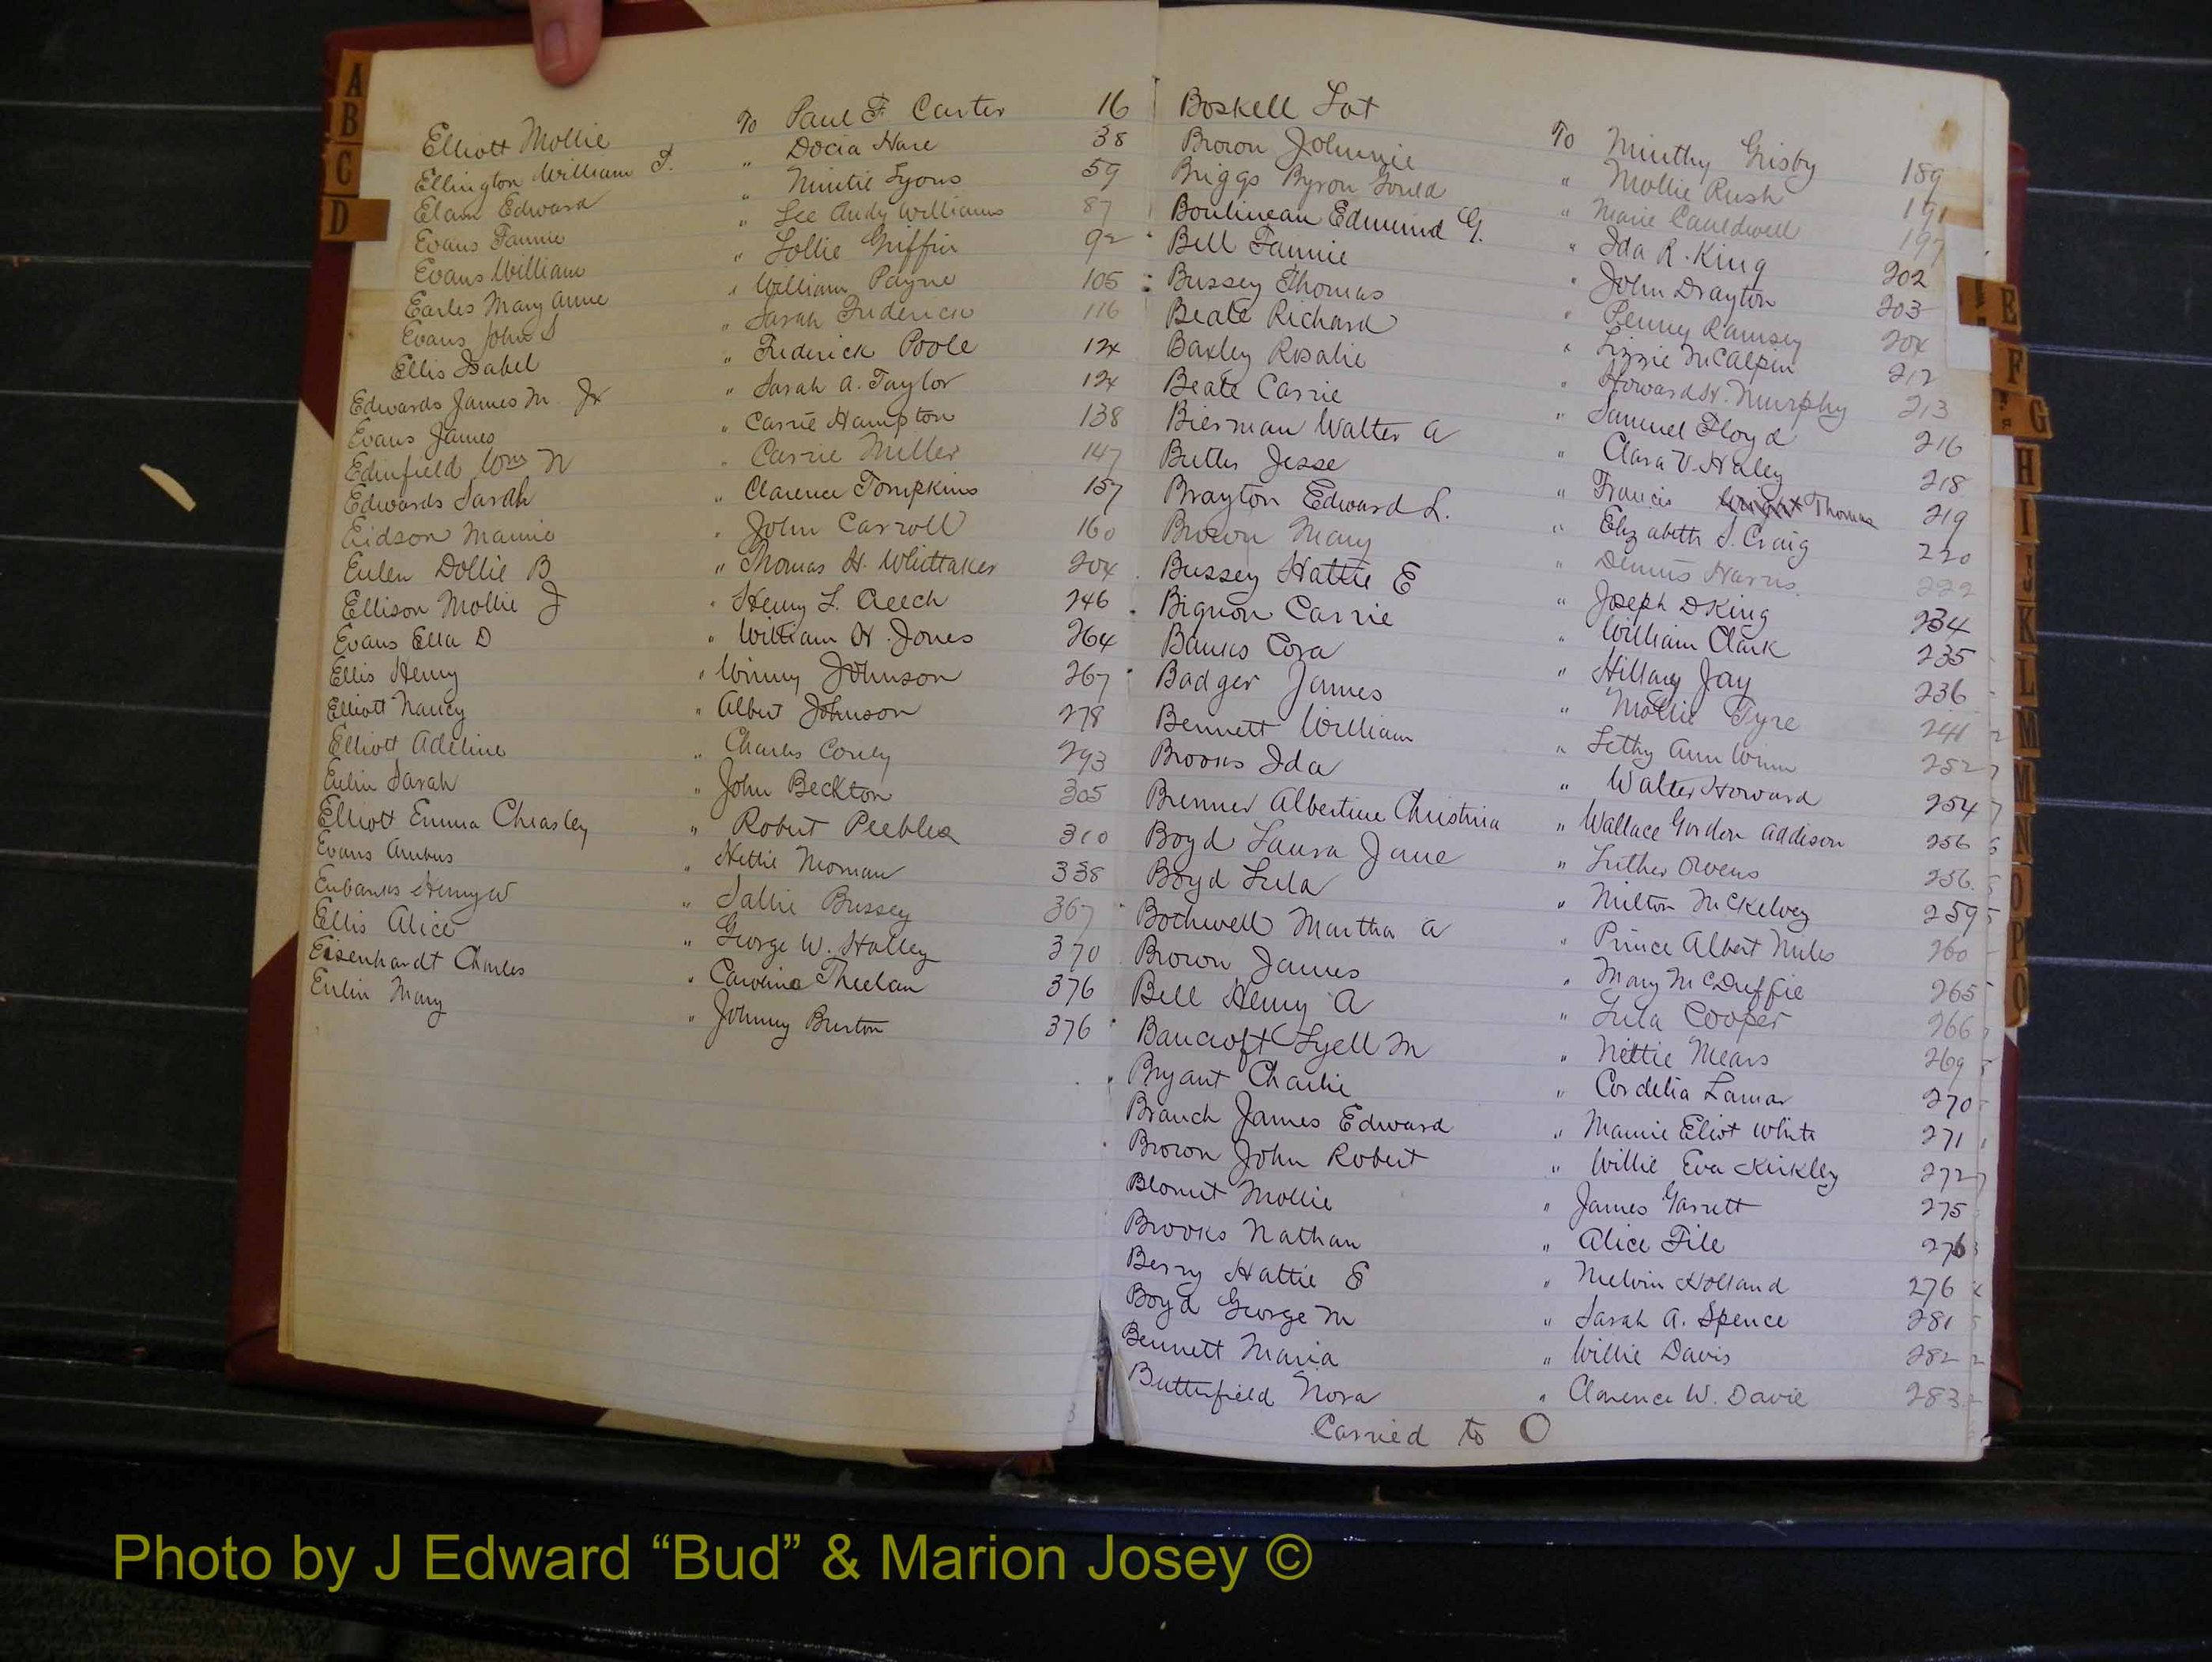 A
B
C
D
Elliott Mollie To Paul F Carter 16
Ellington William T. " Docia Hare 38
Elam Edward " Mintie Lyons 59
Evans Fannie " Lee Andy Williams 87
Evans William " Lollie Griffin 92
Earles Mary Anne " William Payne 105
Evans John S " Sarah Frederick 116
Ellis Isabel " Frederick Poole 124
Edwards James M. Jr " Sarah A. Taylor 124
Evans James " Carrie Hampton 138
Edinfield Wm N " Carrie Miller 147
Edwards Sarah " Clarence Tompkins 157
Eidson Mamie " John Carroll 160
Eulen Dollie B " Thomas H. Whittaker 204
Ellison Mollie J " Henry L. Creech 246
Evans Ella D " William H. Jones 264
Ellis Henry " Winny Johnson 267
Elliott Nancy " Albert Johnson 278
Elliott Adeline " Charles Corley 293
Eulin Sarah " John Beckton 305
Elliott Emma Cheasley " Robert Peebles 310
Evans " Hettie Norman 338
Eubanks Henry W " Sallie Bussey 367
Ellis Alice " George W. Holley 370
Eisenhardt Charles " Carolina Theelan 376
Eulin Mary " Johnny Burton 376
Boskell Lot To Minthy Grisby 189
Brown Johnnie " Mollie Rush 191
Briggs Byron Gould " Marie Cauldwell 197
Boulineau Edmund G. " Ida R. King 202
Bell Fannie " John Drayton 203
Bussey Thomas " Penny Ramsey 204
Beate Richard " Lizzie McAlpin 212
Baxley Rosalie " Howard H. Murphy 213
Beate Carrie " Samuel Floyd 216
Bierman Walter A " Clara V. Haley 218
Butler Jesse " Francis Wright Thomas 219
Brayton Edward L. " Elizabeth S. Craig 220
Brown Mary " Dennis Harris 222
Bussey Hattie E " Joseph D King 234
Bignon Carrie " William Clark 235
Banks Cora " Hillary Jay 236
Badger James " Mollie Tyre 241
Bennett William " Lethy Ann Winn 252
Brooks Ida " Walter Howard 254
Brenner Albertine Christina " Wallace Gordon Addison 256
Boyd Laura Jane " Luther Owens 256
Boyd Lula " Milton McKelvey 259
Bothwell Martha A " Prince Albert Niles 260
Brown James " Mary McDuffie 265
Bell Henry A " Lula Cooper 266
Bancroft Lyell M " Nettie Mears 269
Bryant Charlie " Cordelia Lamar 270
Branch James Edward " Mamie Eliot White 271
Brown John Robert " Willie Eva Kirkley 272
Blount Mollie " James Garrett 275
Brooks Nathan " Alice File 276
Berry Hattie E " Melvin Holland 276
Boyd George M " Sarah A. Spence 281
Bennett Maria " Willie Davis 282
Butterfield Nora " Clarence W. Davie 283
Carried to O
E
F
G
H
I
J
K
L
M
M
N
O
P
Q
Photo by J Edward “Bud” & Marion Josey ©